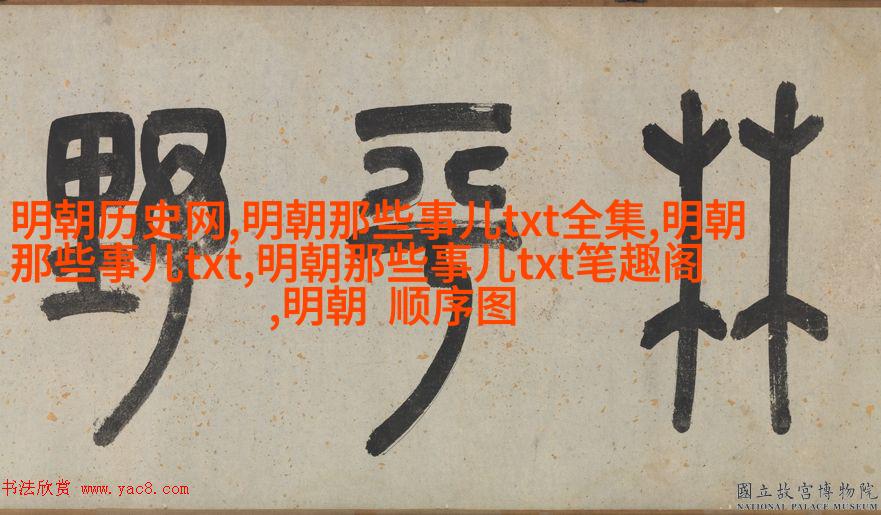 林平野
明朝历史网,明朝那些事儿txt全集,明朝
那些事儿txt,明朝那些事儿txt笔趣阁
,明朝 顺序图
书法欣赏 www.yac8.com
國立故宮博物院
NATIONAL PALACE MUSEUM